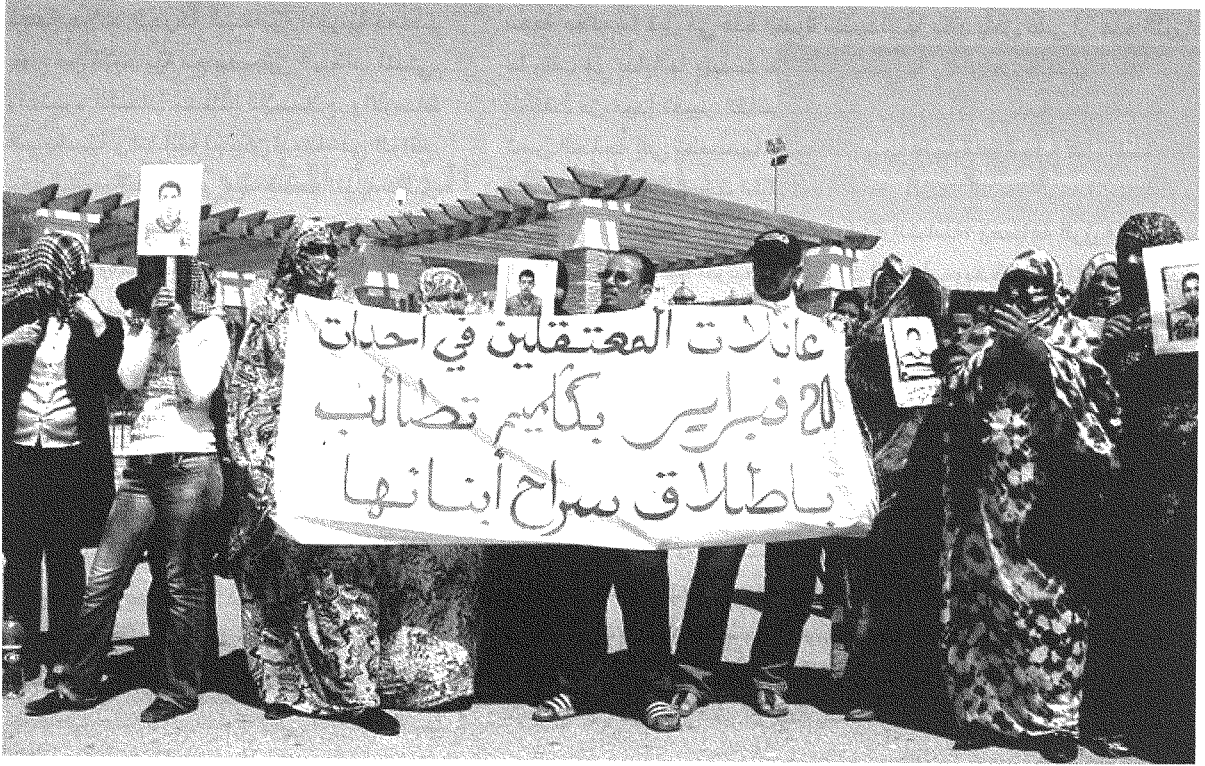 عائلات المعتقلين في احدات
20 فبراير بكليميم تطالب
باطلاق سراح أبنائها